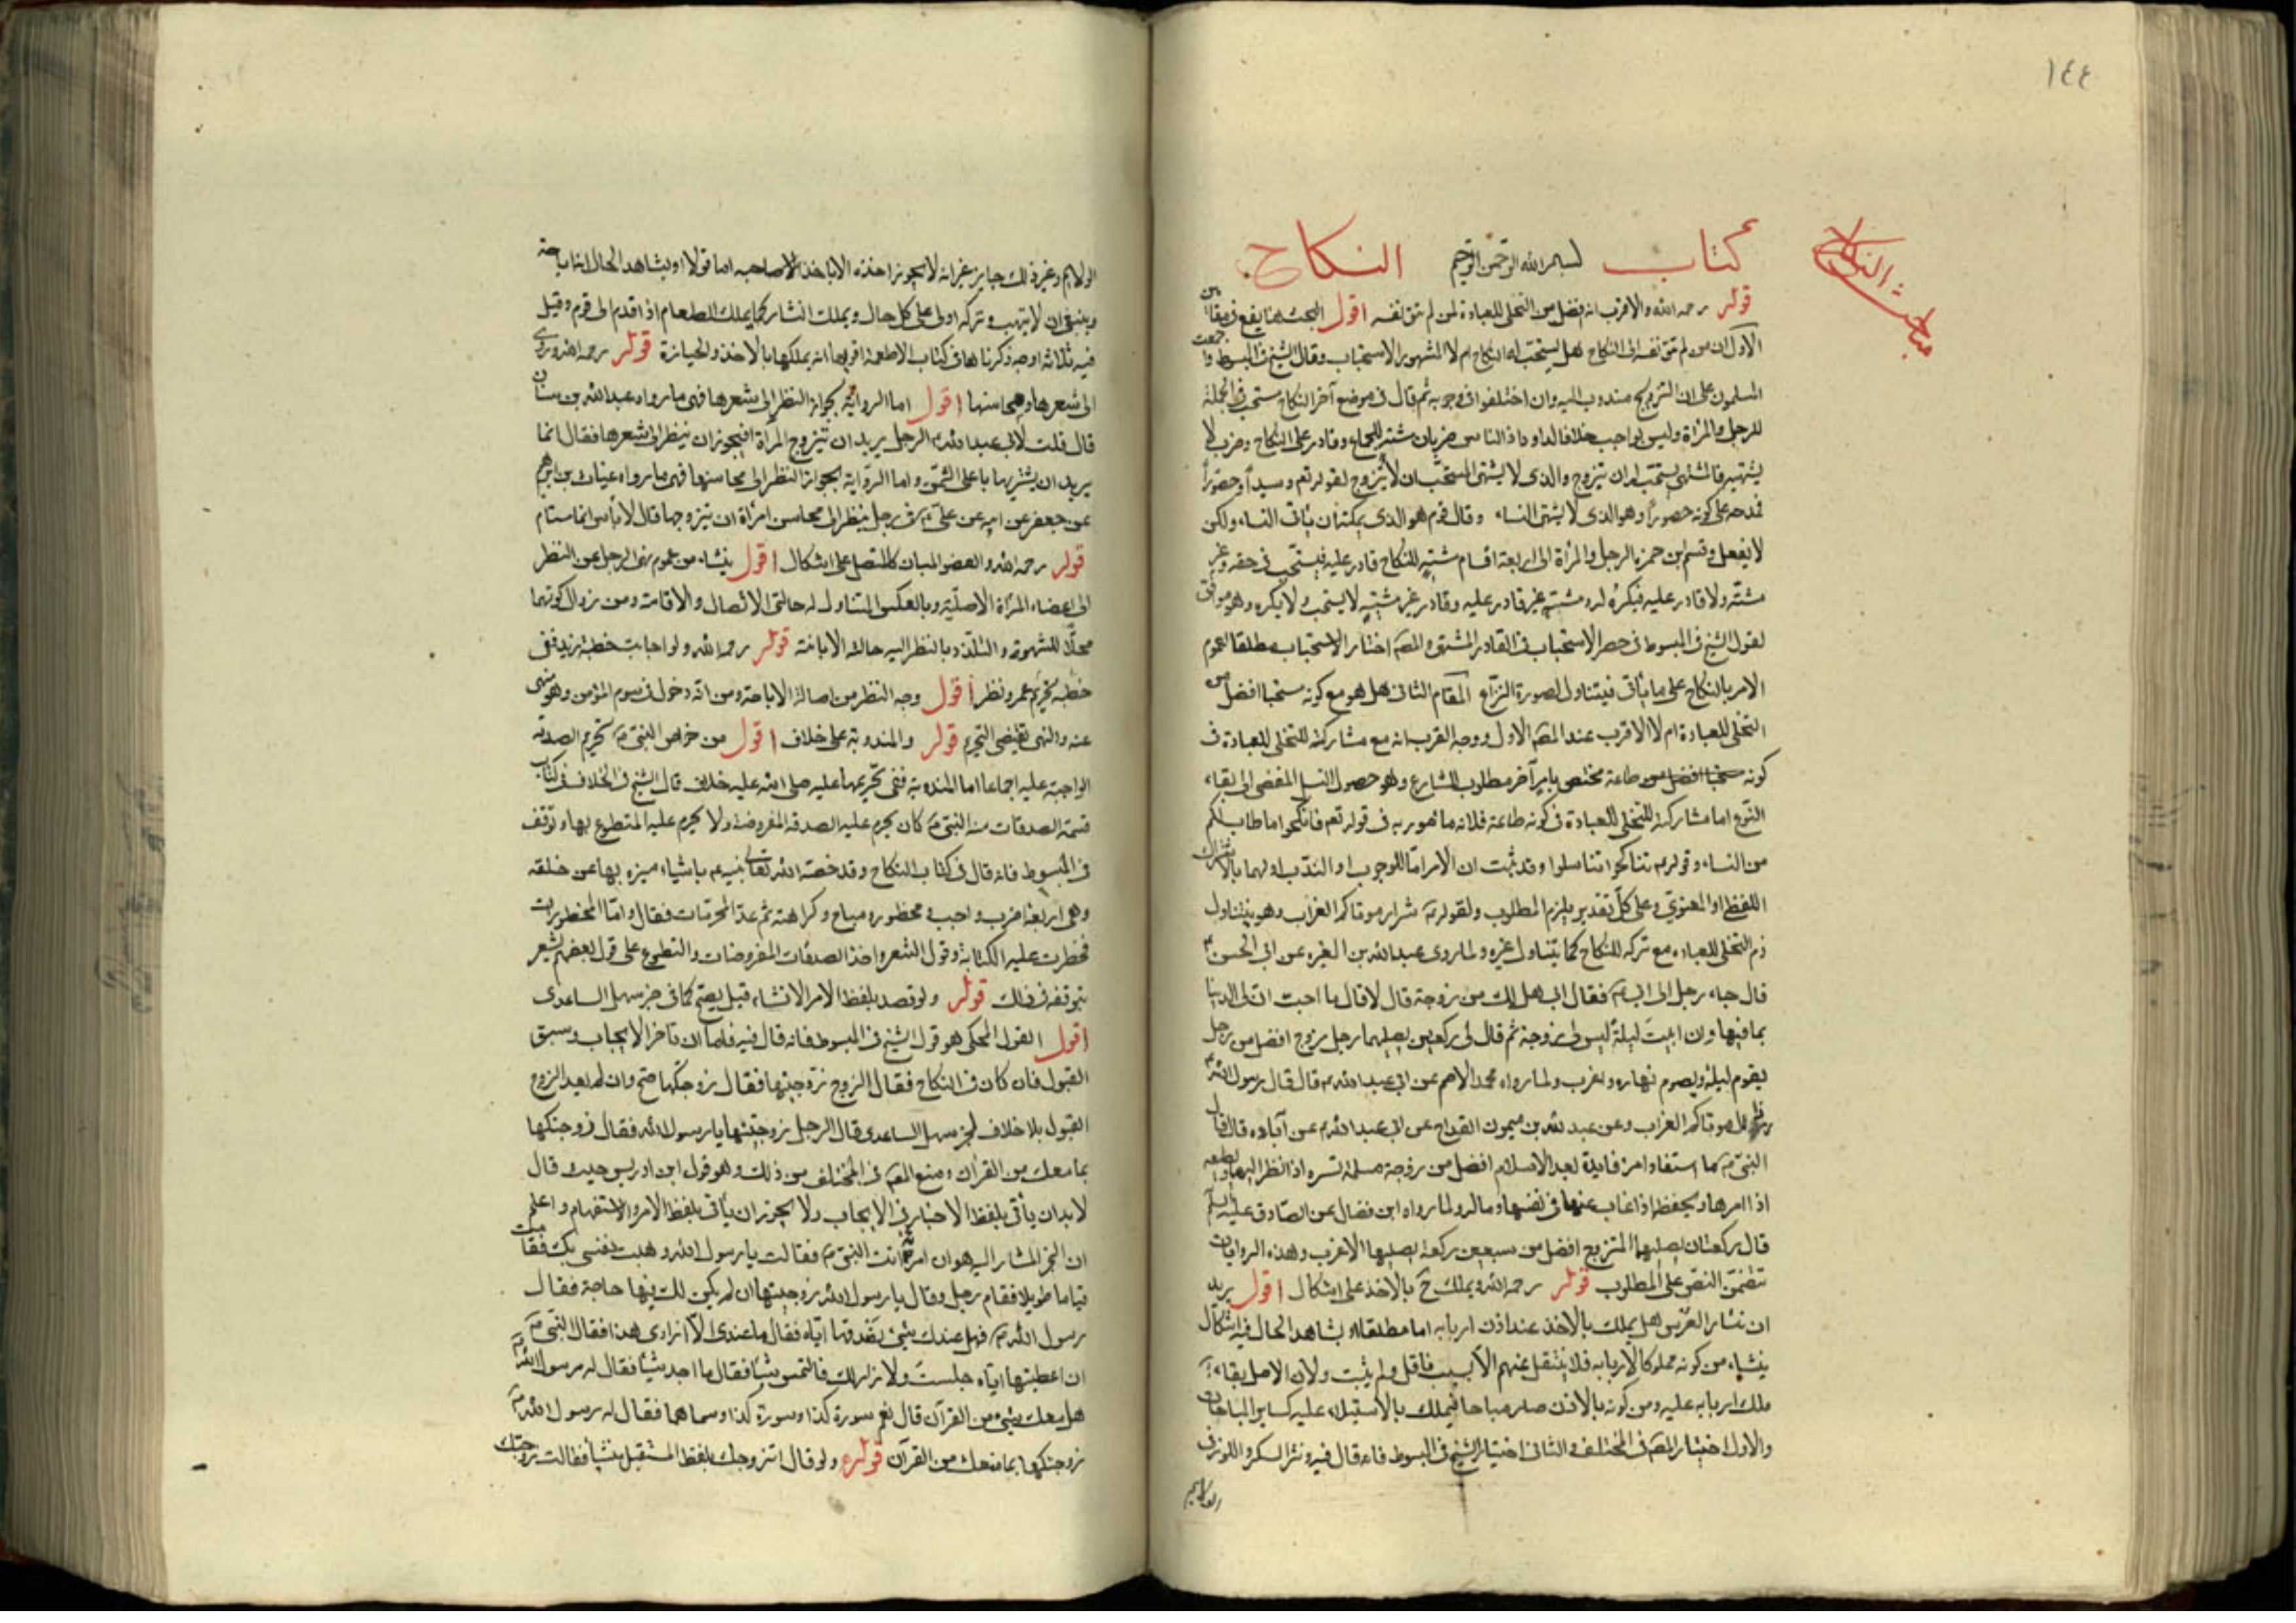 ١٤٤
مباحث النكاح
كتاب بسم الله الرحمن الرحيم النكاح
قوله رحمه الله والاقرب انه افضل من التخلى للعبادة لمن لم تتق نفسه اقول البحث هنا يقع فى مقامين
الاول ان من لم تتق نفسه الى النكاح هل يستحب له النكاح ام لا المشهور الاستحباب وقال الشيخ فى المبسوط واجمعت
المسلمون على ان التزويج مندوب اليه وان اختلفوا فى وجوبه ثم قال فى موضع آخر النكاح مستحب فى الجملة
للرجل والمرأة وليس بواجب خلافا لداود اذا الناس ضربان مشتر للجماع وقادر على النكاح وضرب لا
يشتهيه فالمشتهى يستحب له ان يتزوج والذى لا يشتهى المستحب ان لا يتزوج لقوله تعم وسيداً وحصوراً
فمدحه على كونه حصوراً وهو الذى لا يشتهى النساء وقال قوم هو الذى يمكنه ان يأتى النساء ولكن
لا يفعل وقسم ابن حمزه الرجل والمرأة الى اربعة اقسام مشتهٍ للنكاح قادر عليه فيستحب فى حقه وغير
مشته ولا قادر عليه فيكره له ومشتهٍ غير قادر عليه وقادر غير مشتهٍ لا يستحب ولا يكره وهو موافق
لقول الشيخ فى المبسوط فى حصر الاستحباب فى القادر المشتهى والمصـ اختار الاستحباب مطلقا لعموم
الامر بالنكاح على ما يأتى فيتناول لصورة النزاع المقام الثانى هل هو مع كونه مستحبا افضل من
التخلى للعبادة ام لا الاقرب عند المصـ الاول ووجه القرب انه مع مشاركته للتخلى للعبادة فى
كونه مستحبا افضل من طاعة مختص بامر آخر مطلوب للشارع وهو حصول النسل المفضى الى بقاء
النوع اما مشاركته للتخلى للعبادة فى كونه طاعة فلانه مأمور به فى قوله تعم فانكحوا ما طاب لكم
من النساء وقوله م تناكحوا تناسلوا وقد ثبت ان الامر اما للوجوب او الندب او لهما بالاشتراك
اللفظى او المعنوي وعلى كل تقدير يلزم المطلوب ولقوله م شرار موتاكم العزاب وهو يتناول
ذم التخلى للعباده مع تركه للنكاح كما يتناول غيره ولما روى عبد الله بن المغيره عن ابى الحسن م
قال جاء رجل الى ابى م فقال ابى هل لك من زوجة قال لا قال ما احب ان لى الدنيا
بما فيها وان ابيت ليلة ليس لى زوجة ثم قال لى ركعتين يصليهما رجل زوج افضل من رجل
يقوم ليله ويصوم نهاره واعزب ولما رواه محمد الاصم عن ابى عبد الله م قال قال رسول الله م
رذال موتاكم العزاب وعن عبد الله بن ميمون القداح عن ابى عبد الله م عن آبائه قال قال
النبى م ما استفاد امرء فايدة بعد الاسلام افضل من زوجة مسلمة تسره اذا نظر اليها وتطيعه
اذا امرها وتحفظه اذا غاب عنها فى نفسها وماله ولما رواه ابن فضال عن الصادق عليه السلم
قال ركعتان يصليهما المتزوج افضل من سبعين ركعة يصليها الاعزب وهذه الروايات
تتضمن النص على المطلوب قوله رحمه الله ويملك ح بالاخذ على اشكال اقول يريد
ان نثار العرس هل يملك بالاخذ عند اذن اربابه اما مطلقا او بشاهد الحال فيه اشكال
ينشاء من كونه مملوكا لاربابه فلا ينتقل عنهم الا بسبب ناقل ولم يثبت ولان الاصل بقاء
ملك اربابه عليه ومن كونه بالاذن صار مباحا فيملك بالاستيلاء عليه كساير المباحات
والاول اختيار المصـ فى المختلف والثانى اختيار الشيخ فى المبسوط فانه قال فيه ونثر السكر واللوز فى
الولايم
الولايم وغير ذلك جايز غير انه لا يجوز اخذه الا باذن صاحبه اما قولا او بشاهد الحال انه اباحه
وينبغى ان لا ينتهب وتركه اولى على كل حال ويملك النثار كما يملك الطعام اذا قدم الى قوم وقيل
فيه ثلاثة اوجه ذكرناها فى كتاب الاطعمة اقربها انه يملكها بالاخذ والحيازة قوله رحمه الله وروى
الى شعرها ومحاسنها اقول اما الرواية بجواز النظر الى شعرها فهى ما رواه عبد الله بن سنان
قال قلت لابى عبد الله م الرجل يريد ان يتزوج المرأة افيجوز ان ينظر الى شعرها فقال انما
يريد ان يشتريها باعلى الثمن واما الرواية بجواز النظر الى محاسنها فهى ما رواه غياث بن ابرهيم
عن جعفر عن ابيه عن على م فى رجل ينظر الى محاسن امرأة ان يتزوجها قال لا بأس انما مستام
قوله رحمه الله والعضو المبان كالمتصل على اشكال اقول ينشاء من عموم نهى الرجل عن النظر
الى اعضاء المرأة الاصلية وبالعكس المتناول له حالتى الاتصال والاقامة ومن زوال كونهما
محلا للشهوة والتلذذ بالنظر اليه حالة الابانة قوله رحمه الله ولو اجابت خطبة زيد ففى
خطبه تحريم عمرو نظر اقول وجه النظر من اصالة الاباحة ومن انه دخول فى سوم المؤمن وهو منهى
عنه والنهى يقتضى التحريم قوله والمندوبة على خلاف اقول من خواص النبى م تحريم الصدقة
الواجبة عليه اجماعا اما المندوبة ففى تحريمها عليه صلى الله عليه خلاف قال الشيخ فى الخلاف فى كتاب
قسمة الصدقات منه النبى م كان يحرم عليه الصدقة المفروضة ولا يحرم عليه المتطوع بها وتوقف
فى المبسوط فانه قال فى كتاب النكاح وقد خصه الله تعالى نبيه م باشياء ميزه بها عن خلقه
وهى اربعة اضرب واجب ومحظور ومباح وكراهته ثم عد المحرمات فقال واما المحظورات
فحظرت عليه الكتابة وقول الشعر واخذ الصدقات المفروضات والتطوع على قول بعضهم يشعر
بتوقفه فى ذلك قوله ولو قصد بلفظ الامر الانشاء قيل يصح كما فى خبر سهل الساعدى
اقول القول المحكى هو قول الشيخ فى المبسوط فانه قال فيه فاما ان تاخر الايجاب وسبق
القبول فان كان فى النكاح فقال الزوج زوجنيها فقال زوجتكها صح وان لم يعد الزوج
القبول بلا خلاف لخبر سهل الساعدى قال الرجل زوجنيها يا رسول الله فقال زوجتكها
بما معك من القرآن ومنع المصـ فى المختلف من ذلك وهو قول ابن ادريس حيث قال
لا بد ان يأتى بلفظ الاخبار فى الايجاب ولا يجوز ان يأتى بلفظ الامر والاستفهام واعلم
ان الخبر المشار اليه هو ان امرأة اتت النبى م فقالت يا رسول الله وهبت نفسى لك فقامت
قياما طويلا فقام رجل وقال يا رسول الله زوجنيها ان لم يكن لك فيها حاجة فقال
رسول الله م فهل عندك شىء تصدقها اياه فقال ما عندى الا ازارى هذا فقال النبى م
ان اعطيتها اياه جلست ولا ازار لك فالتمس شيئا فقال ما اجد شيئا فقال له رسول الله م
هل معك شىء من القرآن قال نعم سورة كذا وسورة كذا وسماهما فقال له رسول الله م
زوجتكها بما معك من القرآن قوله ولو قال اتزوجك بلفظ المستقبل منشأ فقالت زوجتك